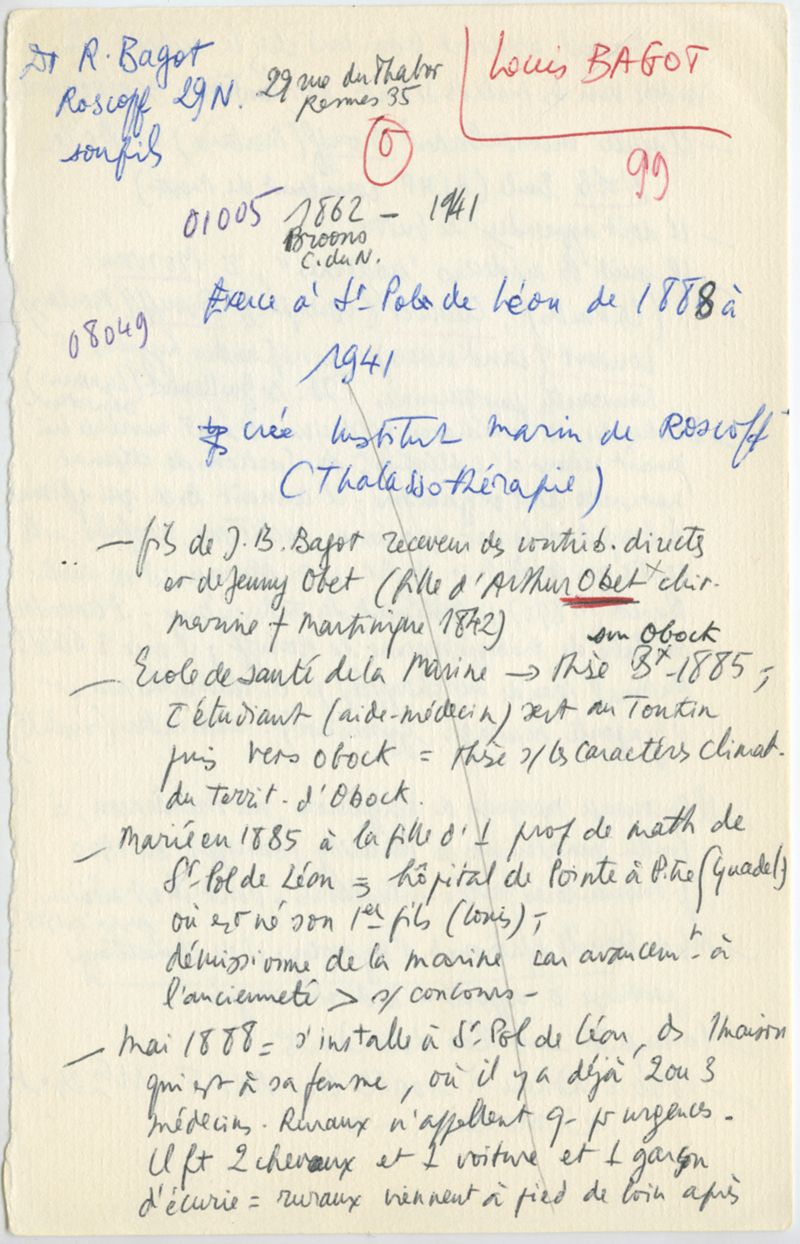 Dr R. Bagot
Roscoff 29 N.
son fils
29 rue du Thabor
Rennes 35
Louis BAGOT
99
01005
1862 - 1941
Broons
C. du N.
Exerce à St-Pol de Léon de 1888 à
08049
1941
crée Institut marin de Roscoff
(Thalassothérapie)
- fils de J. B. Bagot receveur des contrib. directes
et de Jenny Obet (fille d'Arthur Obet x chir.
marine + Martinique 1842)
sur Obock
- Ecole de santé de la Marine → thèse Bx-1885 ;
l'étudiant (aide-médecin) sert au Tonkin
puis vers Obock = thèse s/ les caractères climat.
du territ. d'Obock.
- Marié en 1885 à la fille d'1 prof de math de
St-Pol de Léon → hôpital de Pointe à Pitre (Guadel)
où est né son 1er fils (Louis) ;
démissionne de la marine car avancemt à
l'ancienneté > s/ concours -
- Mai 1888 = s'installe à St-Pol de Léon, ds 1 maison
qui est à sa femme, où il y a déjà 2 ou 3
médecins. Ruraux n'appellent q- pr urgences.
Il ft 2 chevaux et 1 voiture et 1 garçon
d'écurie = ruraux viennent à pied de loin après